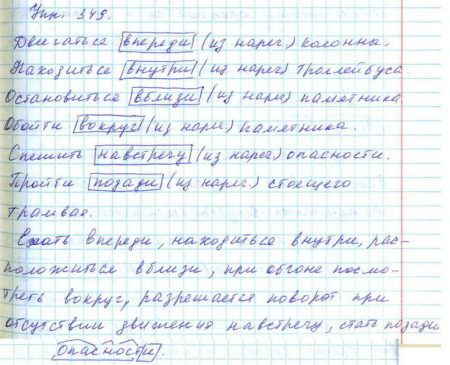 Упр. 349.
Двигаться впереди (из нареч.) колонны.
Находиться внутри (из нареч) троллейбуса.
Остановиться вблизи (из нареч) памятника.
Обойти вокруг (из нареч) памятника.
Спешить навстречу (из нареч) опасности.
Пройти позади (из нареч.) стоящего
трамвая.
Ехать впереди, находиться внутри, рас-
положиться вблизи, при обгоне посмо-
треть вокруг, разрешается поворот при
отсутствии движения навстречу, стать позади
опасности.